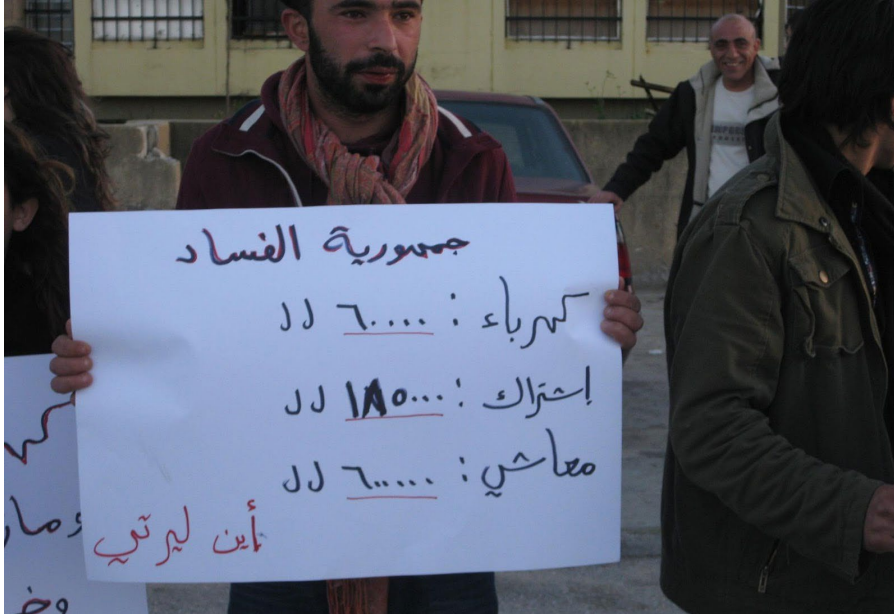 جمهورية الفساد
كهرباء : ٦٠٠٠٠ ل ل
إشتراك : ١٨٥٠٠٠ ل ل
معاشي : ٦٠٠٠٠٠ ل ل
أين ليرتي